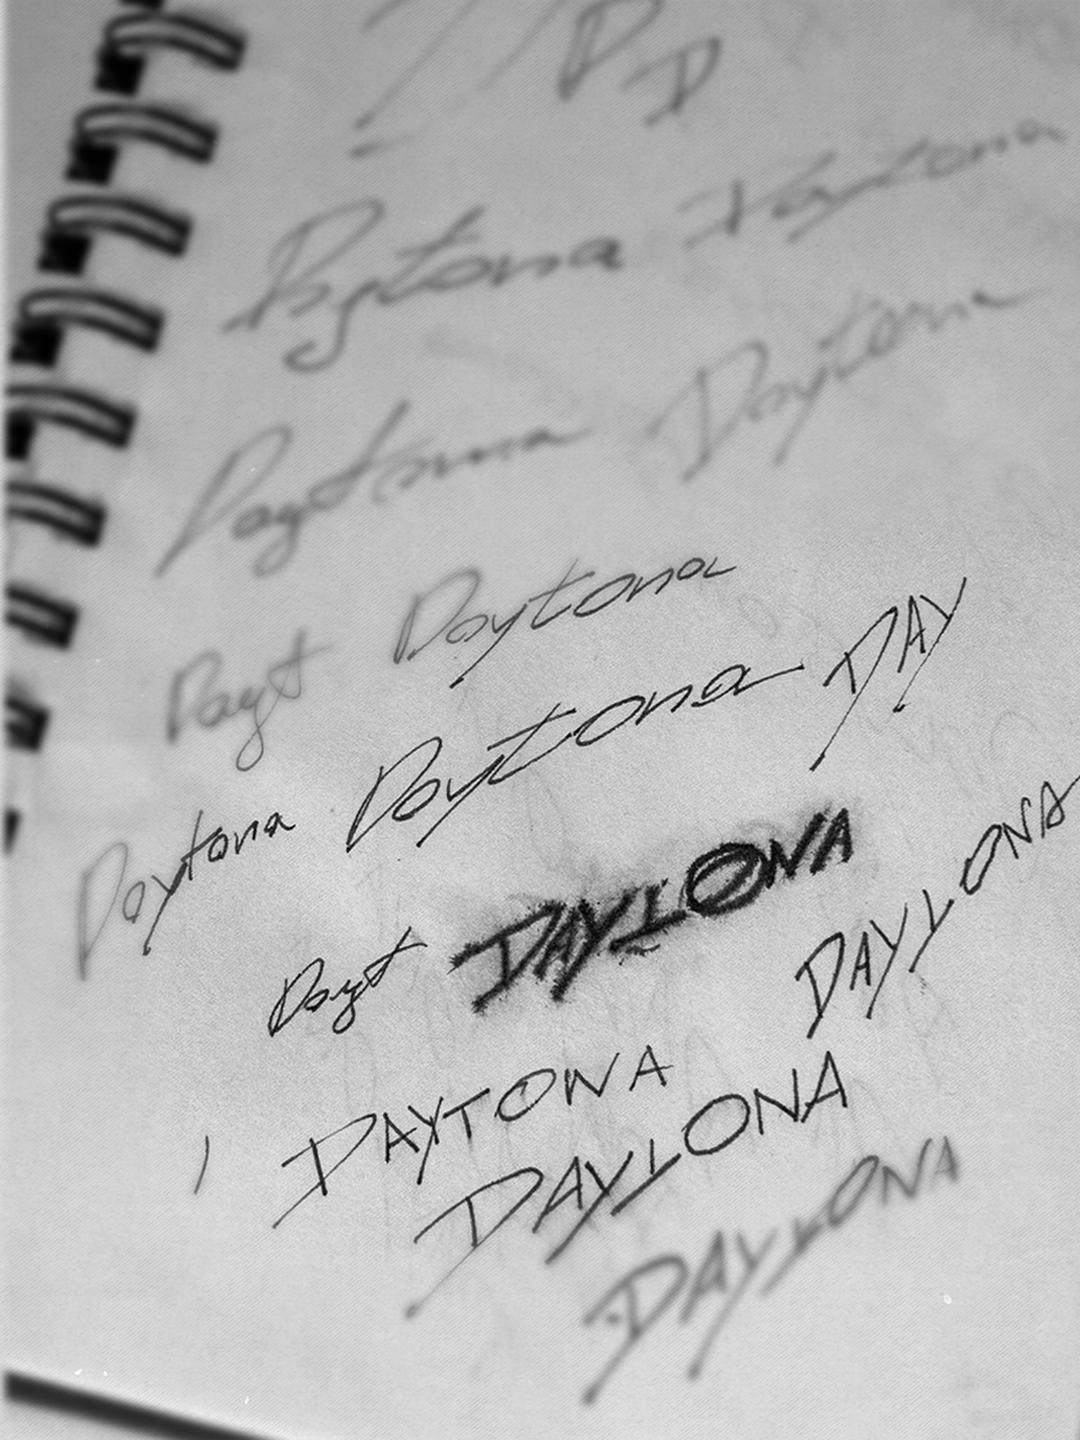 D
D
Daytona Daytona
Daytona Daytona
Dayt Daytona
Daytona Daytona DAY
Dayt DAYTONA DAYTONA
DAYTONA
DAYTONA
DAYTONA